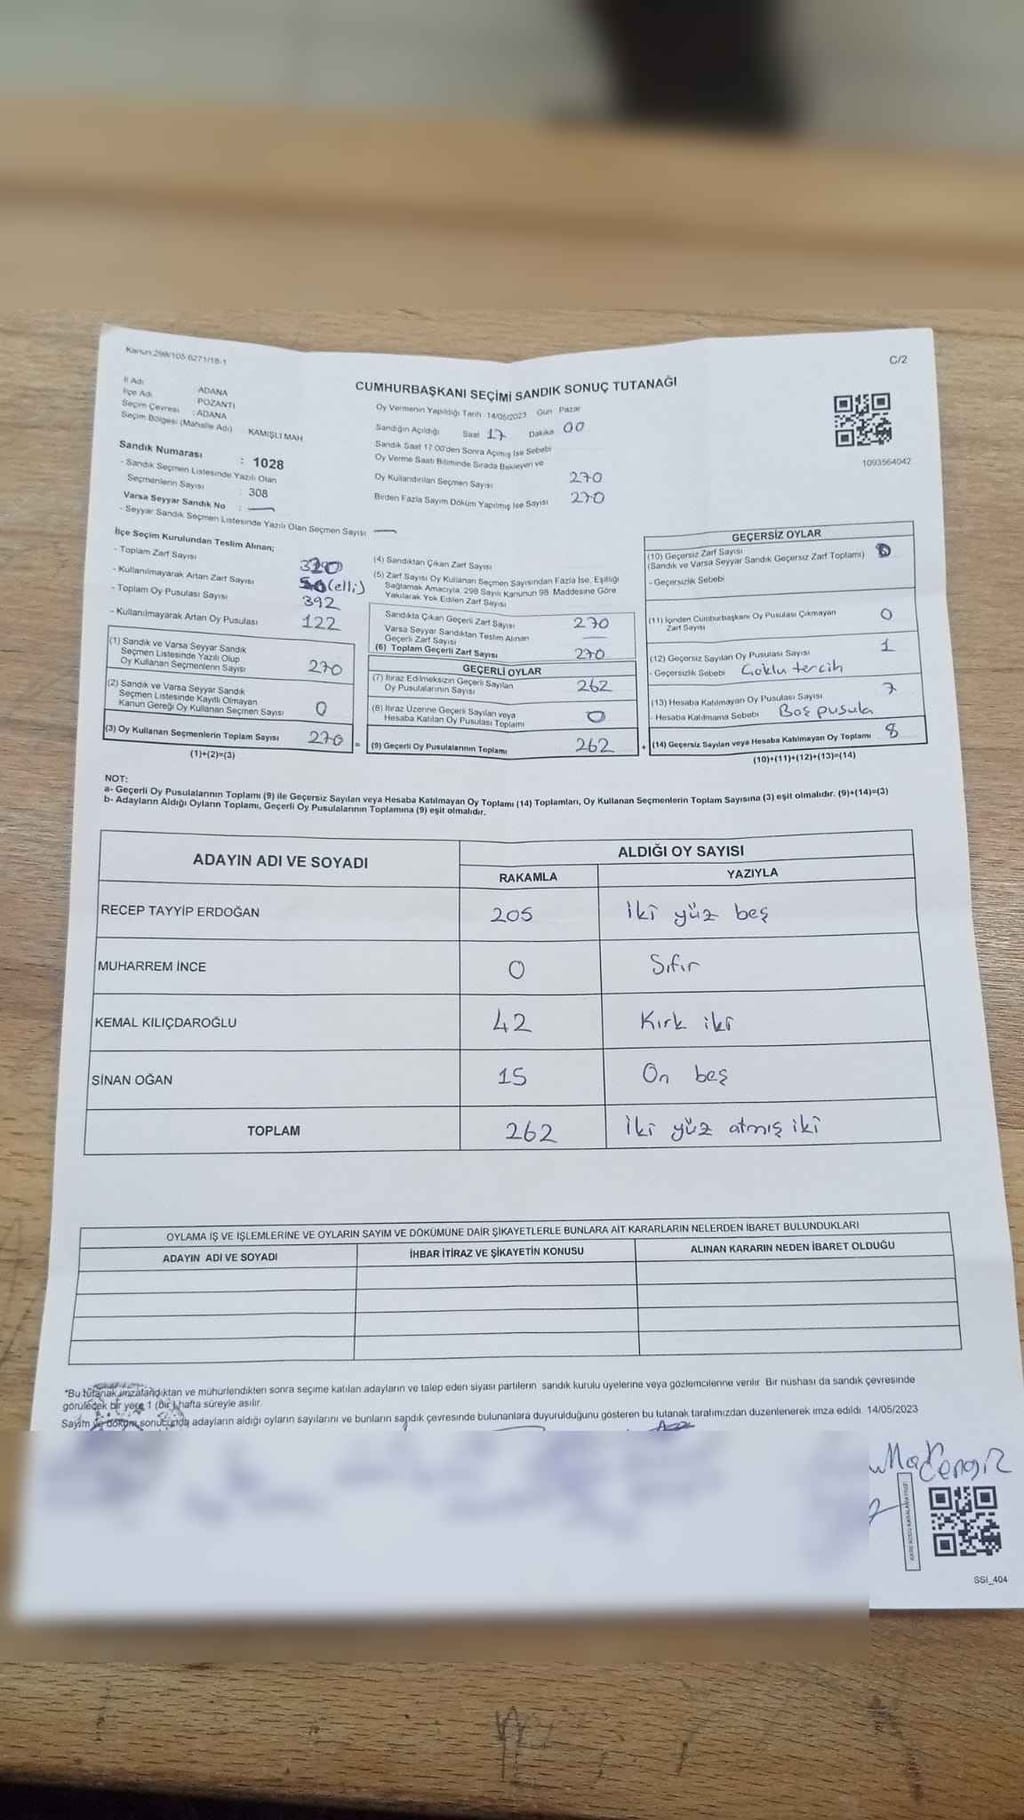 Kanun:298/105 6271/18-1
C/2
CUMHURBAŞKANI SEÇİMİ SANDIK SONUÇ TUTANAĞI
İl Adı ADANA
İlçe Adı POZANTI
Seçim Çevresi : ADANA
Seçim Bölgesi (Mahalle Adı) KAMIŞLI MAH
Sandık Numarası : 1028
- Sandık Seçmen Listesinde Yazılı Olan
Seçmenlerin Sayısı : 308
Varsa Seyyar Sandık No : —
- Seyyar Sandık Seçmen Listesinde Yazılı Olan Seçmen Sayısı —
Oy Vermenin Yapıldığı Tarih 14/05/2023 Gün Pazar
Sandığın Açıldığı Saat 17 Dakika 00
Sandık Saat 17:00'den Sonra Açılmış İse Sebebi
Oy Verme Saati Bitiminde Sırada Bekleyen ve
Oy Kullandırılan Seçmen Sayısı 270
Birden Fazla Sayım Döküm Yapılmış İse Sayısı 270
1093564042
İlçe Seçim Kurulundan Teslim Alınan;
- Toplam Zarf Sayısı 320
- Kullanılmayarak Artan Zarf Sayısı 50 (elli)
- Toplam Oy Pusulası Sayısı 392
- Kullanılmayarak Artan Oy Pusulası 122
(1) Sandık ve Varsa Seyyar Sandık
Seçmen Listesinde Yazılı Olup
Oy Kullanan Seçmenlerin Sayısı 270
(2) Sandık ve Varsa Seyyar Sandık
Seçmen Listesinde Kayıtlı Olmayan
Kanun Gereği Oy Kullanan Seçmen Sayısı 0
(3) Oy Kullanan Seçmenlerin Toplam Sayısı 270 =
(1)+(2)=(3)
(4) Sandıktan Çıkan Zarf Sayısı
(5) Zarf Sayısı Oy Kullanan Seçmen Sayısından Fazla İse, Eşitliği
Sağlamak Amacıyla, 298 Sayılı Kanunun 98. Maddesine Göre
Yakılarak Yok Edilen Zarf Sayısı
Sandıkta Çıkan Geçerli Zarf Sayısı 270
Varsa Seyyar Sandıktan Teslim Alınan
Geçerli Zarf Sayısı —
(6) Toplam Geçerli Zarf Sayısı 270
GEÇERLİ OYLAR
(7) İtiraz Edilmeksizin Geçerli Sayılan
Oy Pusulalarının Sayısı 262
(8) İtiraz Üzerine Geçerli Sayılan veya
Hesaba Katılan Oy Pusulası Toplamı 0
(9) Geçerli Oy Pusulalarının Toplamı 262 +
GEÇERSİZ OYLAR
(10) Geçersiz Zarf Sayısı
(Sandık ve Varsa Seyyar Sandık Geçersiz Zarf Toplamı) 0
- Geçersizlik Sebebi
(11) İçinden Cumhurbaşkanı Oy Pusulası Çıkmayan
Zarf Sayısı 0
(12) Geçersiz Sayılan Oy Pusulası Sayısı 1
- Geçersizlik Sebebi Çoklu tercih
(13) Hesaba Katılmayan Oy Pusulası Sayısı 7
- Hesaba Katılmama Sebebi Boş pusula
(14) Geçersiz Sayılan veya Hesaba Katılmayan Oy Toplamı 8
(10)+(11)+(12)+(13)=(14)
NOT:
a- Geçerli Oy Pusulalarının Toplamı (9) ile Geçersiz Sayılan veya Hesaba Katılmayan Oy Toplamı (14) Toplamları, Oy Kullanan Seçmenlerin Toplam Sayısına (3) eşit olmalıdır. (9)+(14)=(3)
b- Adayların Aldığı Oyların Toplamı, Geçerli Oy Pusulalarının Toplamına (9) eşit olmalıdır.
ADAYIN ADI VE SOYADI ALDIĞI OY SAYISI
RAKAMLA YAZIYLA
RECEP TAYYİP ERDOĞAN 205 İki yüz beş
MUHARREM İNCE 0 Sıfır
KEMAL KILIÇDAROĞLU 42 Kırk iki
SİNAN OĞAN 15 On beş
TOPLAM 262 İki yüz atmış iki
OYLAMA İŞ VE İŞLEMLERİNE VE OYLARIN SAYIM VE DÖKÜMÜNE DAİR ŞİKAYETLERLE BUNLARA AİT KARARLARIN NELERDEN İBARET BULUNDUKLARI
ADAYIN ADI VE SOYADI İHBAR İTİRAZ VE ŞİKAYETİN KONUSU ALINAN KARARIN NEDEN İBARET OLDUĞU
"Bu tutanak imzalandıktan ve mühürlendikten sonra seçime katılan adayların ve talep eden siyasi partilerin sandık kurulu üyelerine veya gözlemcilerine verilir. Bir nüshası da sandık çevresinde
görülecek bir yere 1 (bir) hafta süreyle asılır.
Sayım ve döküm sonucunda adayların aldığı oyların sayılarını ve bunların sandık çevresinde bulunanlara duyurulduğunu gösteren bu tutanak tarafımızdan düzenlenerek imza edildi. 14/05/2023
SSI_404